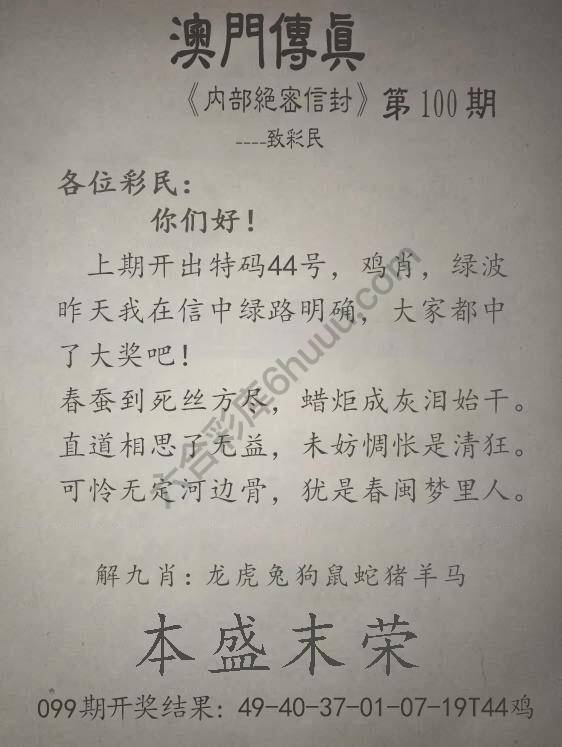 澳門傳眞
《内部絕密信封》第100期
----致彩民
各位彩民：
你们好！
上期开出特码44号，鸡肖，绿波
昨天我在信中绿路明确，大家都中
了大奖吧！
春蚕到死丝方尽，蜡炬成灰泪始干。
直道相思了无益，未妨惆怅是清狂。
可怜无定河边骨，犹是春闺梦里人。
六合彩库6huuu.com
解九肖：龙虎兔狗鼠蛇猪羊马
本盛末荣
099期开奖结果：49-40-37-01-07-19T44鸡